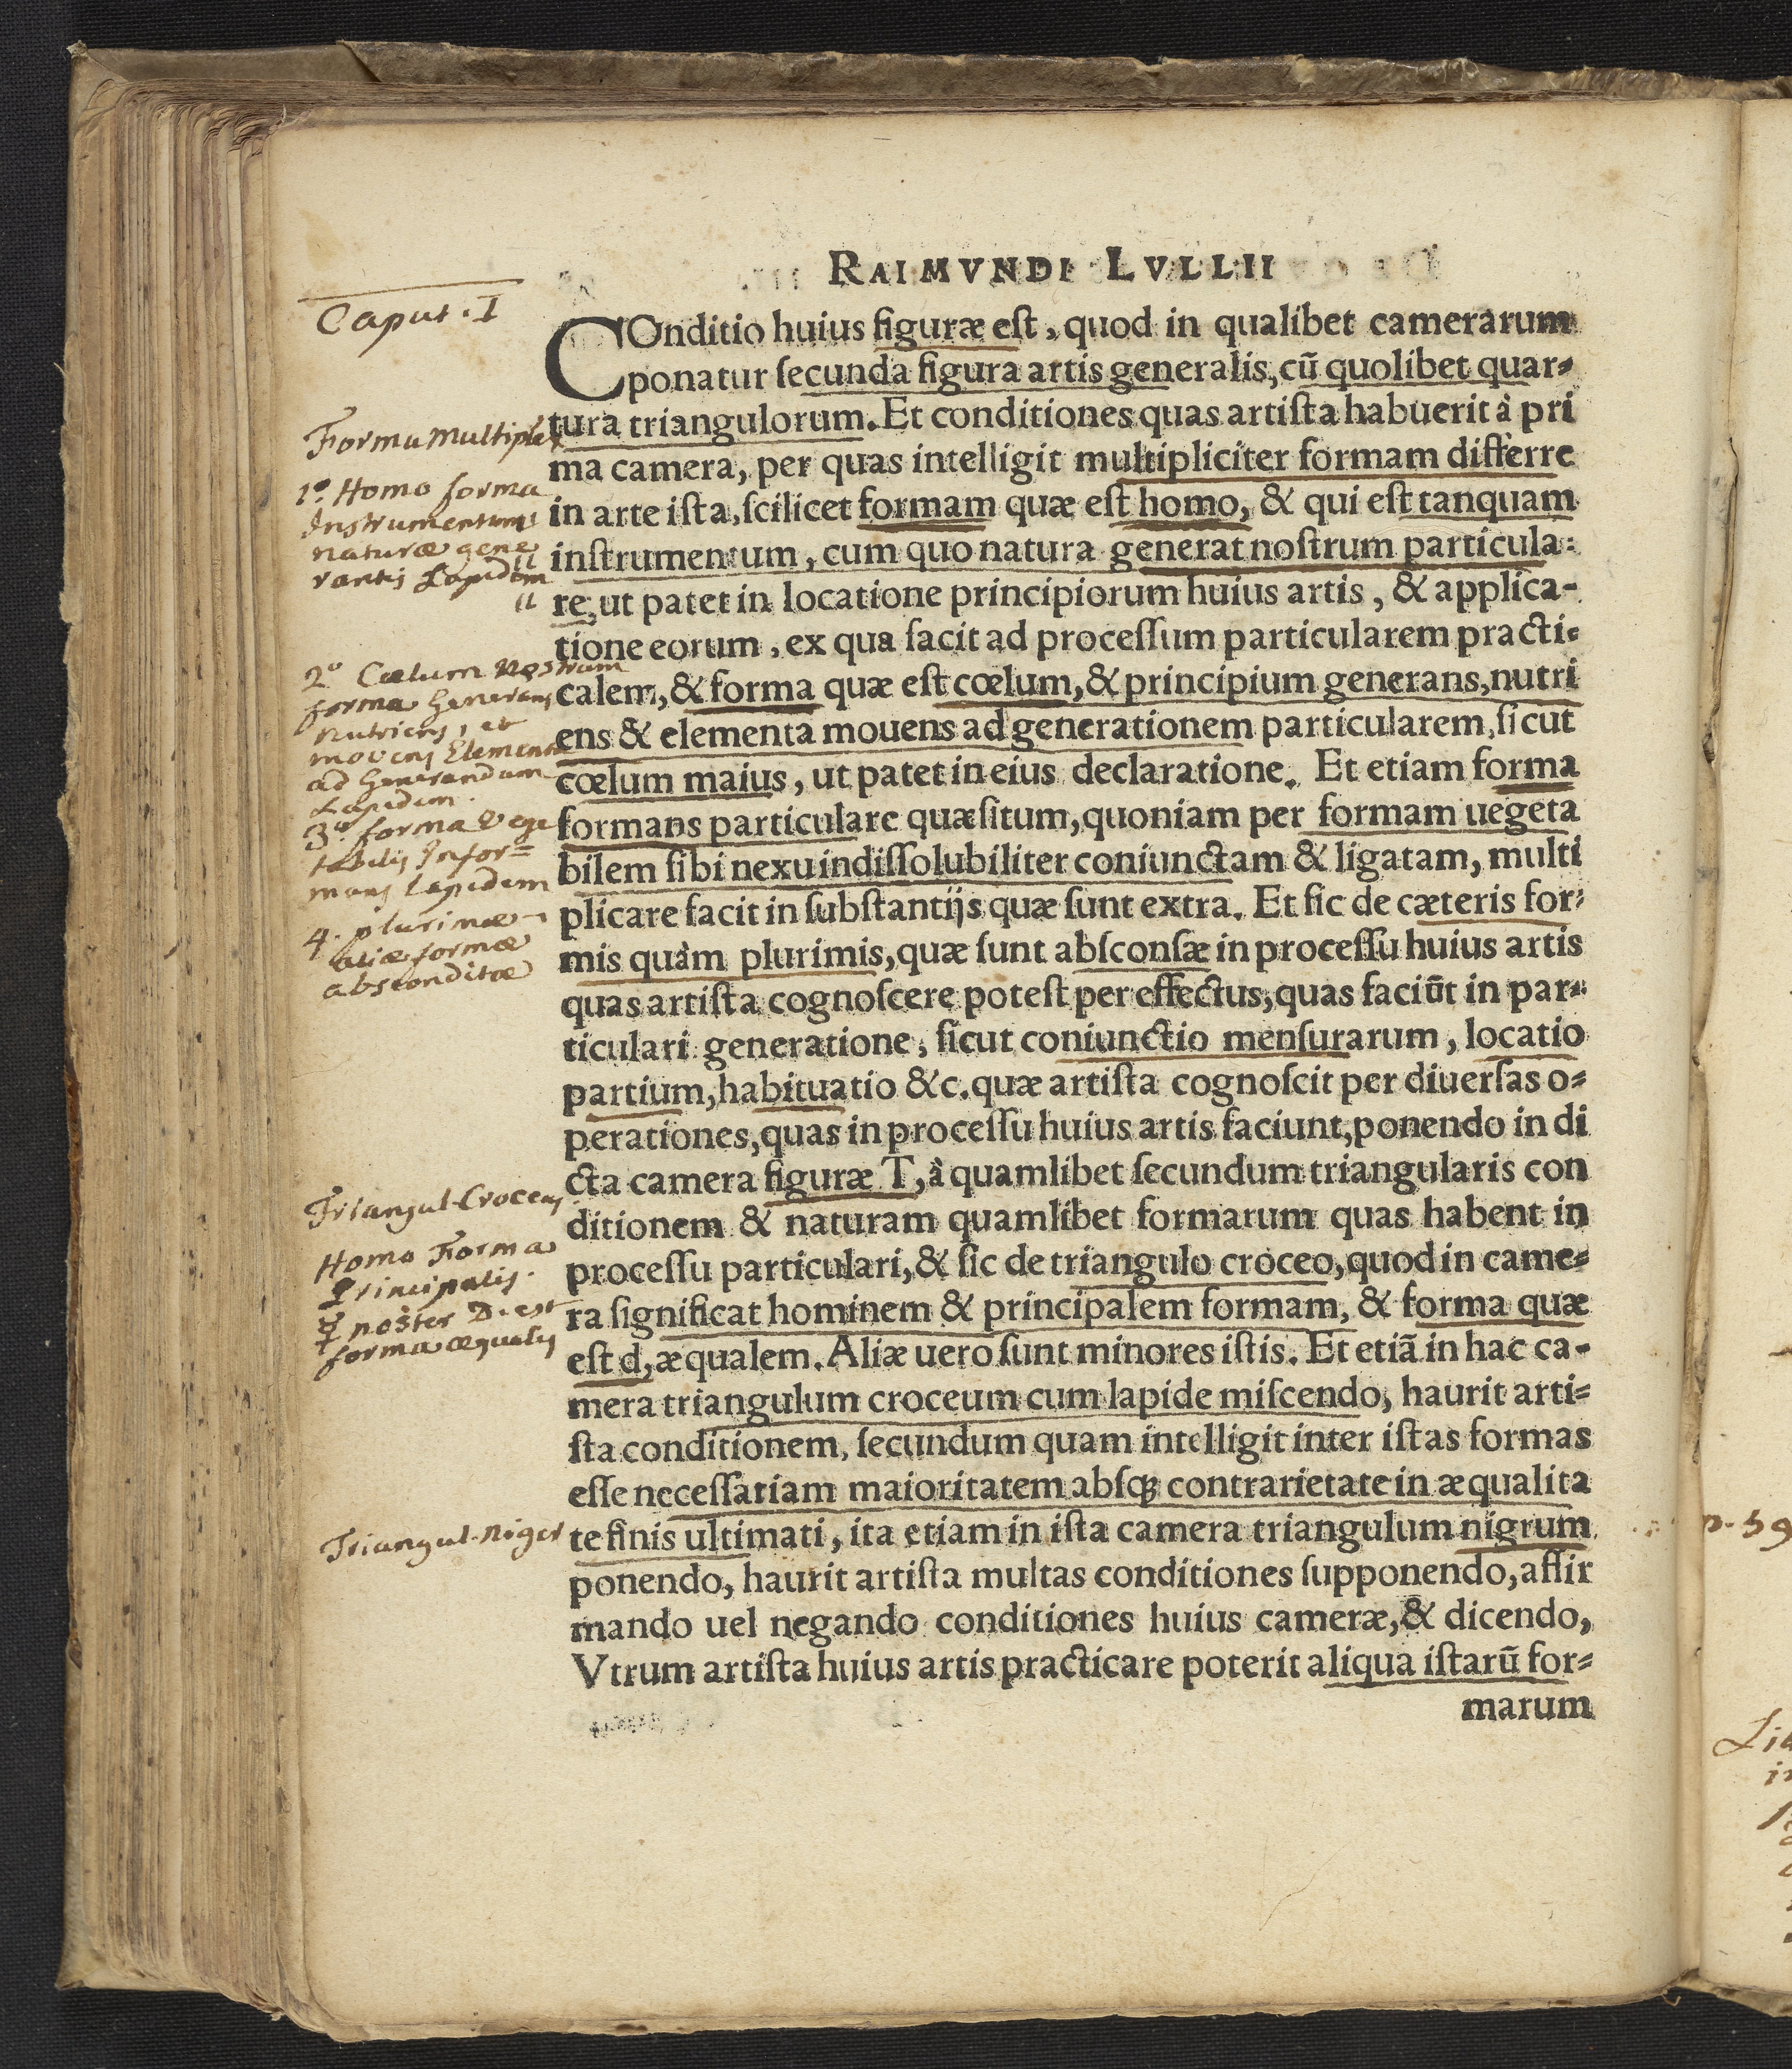 RAIMVNDI LVLLII
Caput. I
COnditio huius figuræ est, quod in qualibet camerarum
ponatur ſecunda figura artis generalis, cū quolibet quar-
tura triangulorum. Et conditiones quas artiſta habuerit à pri
ma camera, per quas intelligit multipliciter formam differre
in arte iſta, ſcilicet formam quæ eſt homo, & qui eſt tanquam
inſtrumentum, cum quo natura generat noſtrum particula-
re, ut patet in locatione principiorum huius artis, & applica-
tione eorum, ex qua facit ad proceſſum particularem practi-
calem, & forma quæ eſt cœlum, & principium generans, nutri
ens & elementa mouens ad generationem particularem, ſicut
cœlum maius, ut patet in eius declaratione. Et etiam forma
formans particulare quæſitum, quoniam per formam uegeta
bilem ſibi nexu indiſſolubiliter coniunctam & ligatam, multi
plicare facit in ſubſtantijs quæ ſunt extra. Et ſic de cæteris for-
mis quàm plurimis, quæ ſunt abſconſæ in proceſſu huius artis
quas artiſta cognoſcere poteſt per effectus, quas faciūt in par-
ticulari generatione, ſicut coniunctio menſurarum, locatio
partium, habituatio &c. quæ artiſta cognoſcit per diuerſas o-
perationes, quas in proceſſu huius artis faciunt, ponendo in di
cta camera figuræ T, à quamlibet ſecundum triangularis con
ditionem & naturam quamlibet formarum quas habent in
proceſſu particulari, & ſic de triangulo croceo, quod in came-
ra ſignificat hominem & principalem formam, & forma quæ
eſt d, æqualem. Aliæ uero ſunt minores iſtis. Et etiā in hac ca-
mera triangulum croceum cum lapide miſcendo, haurit arti-
ſta conditionem, ſecundum quam intelligit inter iſtas formas
eſſe neceſſariam maioritatem abſq; contrarietate in æqualita
te finis ultimati, ita etiam in iſta camera triangulum nigrum
ponendo, haurit artiſta multas conditiones ſupponendo, affir
mando uel negando conditiones huius cameræ, & dicendo,
Vtrum artiſta huius artis practicare poterit aliqua iſtarū for-
marum
Forma Multiplex
1º. Homo forma
Instrumentum
naturæ gene
rantis Lapidem
2º Cœlum Nostrum
forma Generans
nutriens, et
movens Elementa
ad Generandum
Lapidem.
3ª forma Vege
tabilis Infor=
mans Lapidem
4. plurimæ
aliæ formæ
absconditæ
Triangul. Croceus
Homo Forma
Principalis.
☿ noster D. est
forma æqualis
Triangul. Niger
p. 59